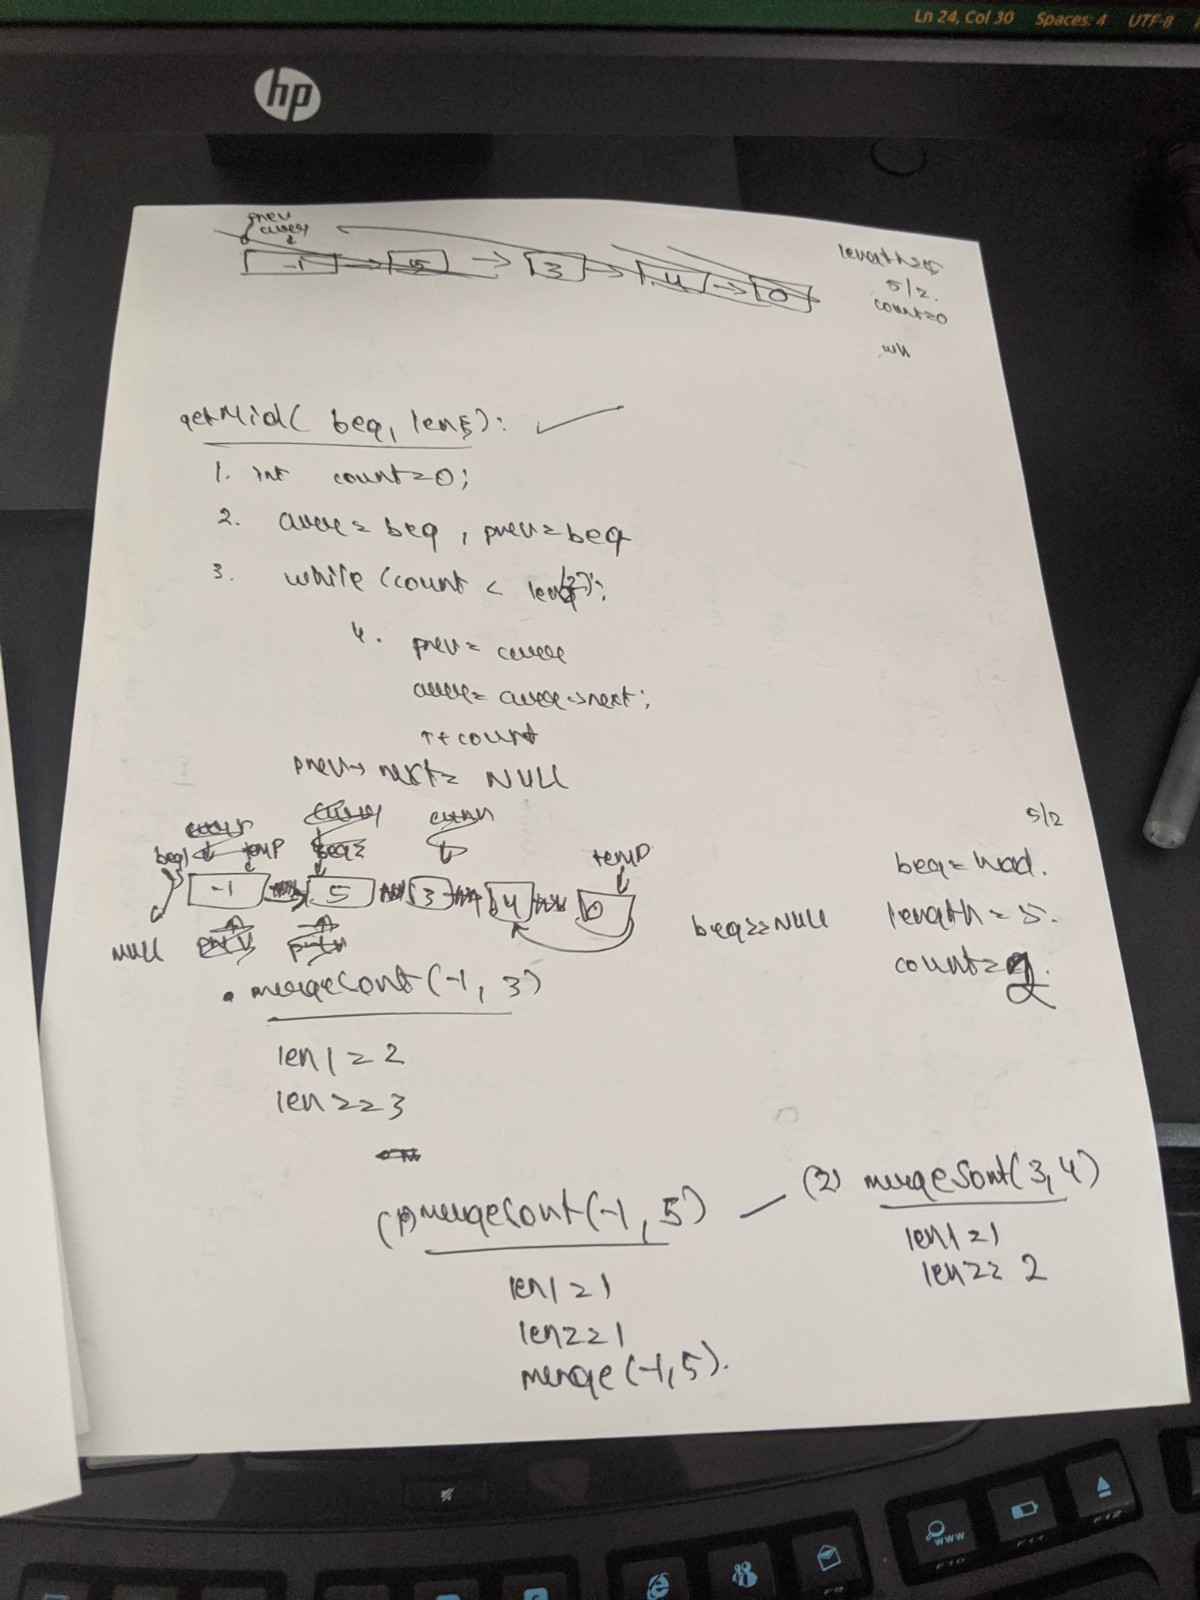 Ln 24, Col 30 Spaces: 4 UTF-8
hp
prev
curr
-1 → 5 → 3 → 4 → 0
length=5
5/2.
count=0
wh
getMid( beg, len):
1. int count=0;
2. curr= beg, prev=beg
3. while (count < len/2):
4. prev= curr
curr= curr->next;
++count
prev→ next= NULL
curr curr curr
beg1 temp beg2 temp
-1 5 3 4 0
NULL prev prev
beg2=NULL
5/2
beg=head.
length=5.
count=2.
• mergeSort(-1, 3)
len1=2
len2=3
(1) mergeSort(-1, 5) — (2) mergeSort(3,4)
len1=1
len2=2
len1=1
len2=1
merge(-1,5).
www
F10 F11 F12
F9